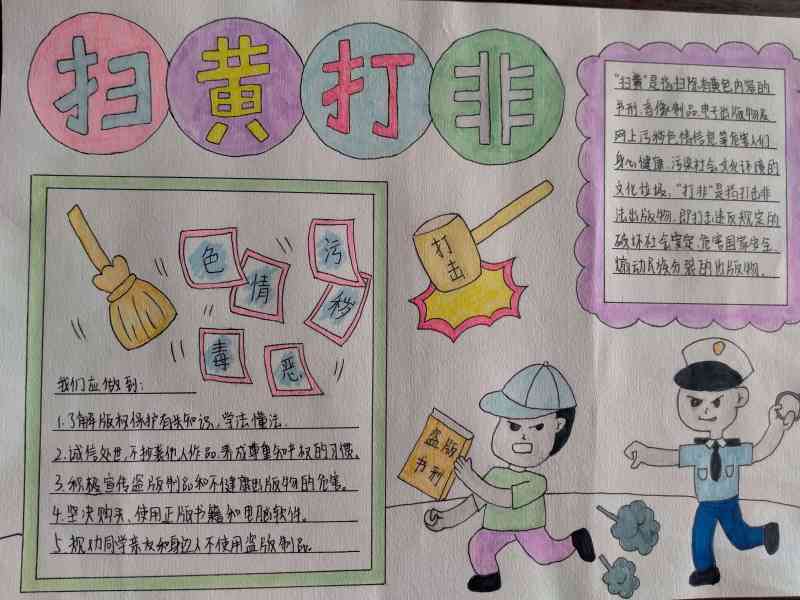 扫黄打非
"扫黄"是指扫除有黄色内容的
书刊、音像制品、电子出版物及
网上污秽色情信息等危害人们
身心健康、污染社会文化环境的
文化垃圾。"打非"是指打击非
法出版物,即打击违反规定的
破坏社会安定、危害国家安全
煽动民族分裂的出版物。
色
情
污
秽
毒
恶
打
击
我们应做到:
1.了解版权保护有关知识,学法懂法.
2.诚信处世,不抄袭他人作品,养成尊重知识产权的习惯。
3.积极宣传盗版制品和不健康出版物的危害。
4.坚决购买、使用正版书籍和电脑软件。
5.规劝同学亲友和身边人不使用盗版制品。
盗版
书刊